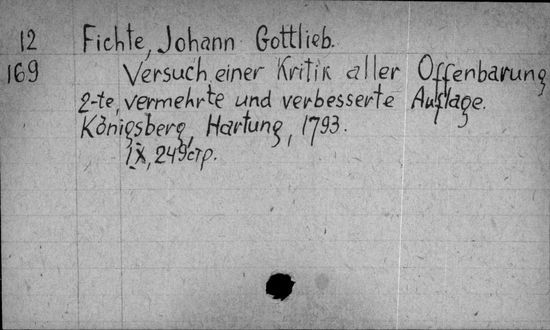 12 Fichte, Johann Gottlieb.
169 Versuch einer Kritik aller Offenbarung
2-te, vermehrte und verbesserte Auflage.
Königsberg, Hartung, 1793.
IX, 249 стр.